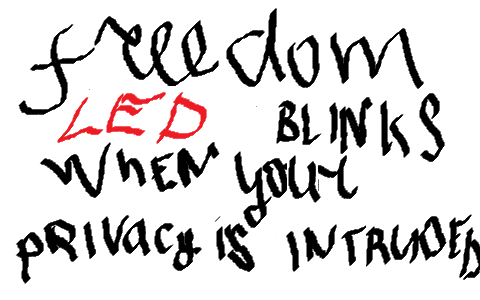 freedom
LED BLINKS
WHEN your
PRIVACY is INTRUDED